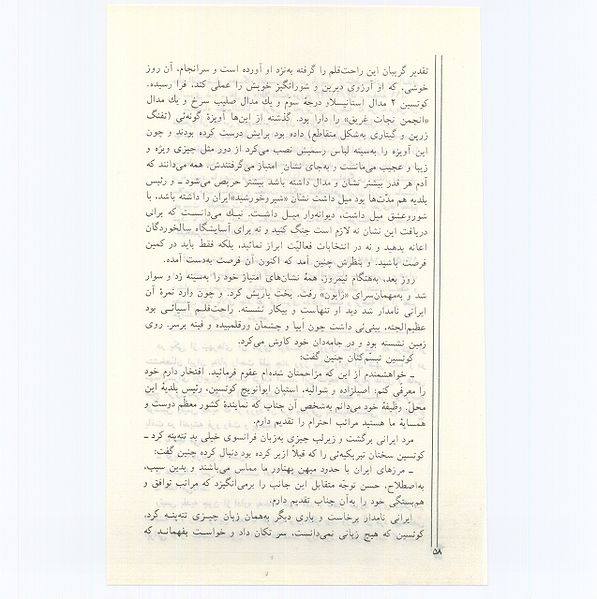 تقدیر گریبان این راحت‌قلم را گرفته به‌نزد او آورده است و سرانجام، آن روز
خوشی، که او آرزوی دیرین و شورانگیز خویش را عملی کند، فرا رسیده.
کوتسین ۲ مدال استانیسلاو درجهٔ سوّم و یك مدال صلیب سرخ و یك مدال
«انجمن نجات غریق» را دارا بود. گذشته از این‌ها آویزهٔ گونه‌ئی (تفنگ
زرین و گیتاری به‌شکل متقاطع) داده بود برایش درست کرده بودند و چون
این آویزه را به‌سینه لباس رسمیش نصب می‌کرد از دور مثل چیزی ویژه و
زیبا و عجیب می‌مانست و به‌جای نشان امتیاز می‌گرفتندش. همه می‌دانند که
آدم هر قدر بیشتر نشان و مدال داشته باشد بیشتر حریص می‌شود ـ و رئیس
بلدیه هم مدّت‌ها بود میل داشت نشان «شیروخورشید» ایران را داشته باشد، با
شوروعشق میل داشت، دیوانه‌وار میـل داشـت. نیـك می‌دانـست که برای
دریافت این نشان نه لازم است جنگ کنید و نه برای آسایشگاه سالخوردگان
اعانه بدهید و نه در انتخابات فعالیّت ابراز نمائید، بلکه فقط باید در کمین
فرصت باشید. و بنظرش چنین آمد که اکنون آن فرصت به‌دست آمده.
روز بعد، به‌هنگام نیمروز، همهٔ نشان‌های امتیاز خود را به‌سینه زد و سوار
شد و به‌مهمان‌سرای «ژاپون» رفت. بخت یاریش کرد. و چون وارد نمرهٔ آن
ایرانی نامدار شد دید او تنهاست و بیکار نشسته. راحت‌قلـم آسیائـی بود
عظیم‌الجثه، بینی‌ئی داشت چون ابیا و چشمان ورقلمبیده و فینه برسر. روی
زمین نشسته بود و در جامه‌دان خود کاوش می‌کرد.
کوتسین تبسّم‌کنان چنین گفت:
ـ خواهشمندم از این که مزاحمتان شده‌ام عفوم فرمائید. افتخار دارم خود
را معرفّی کنم: اصیلزاده و شوالیه، استپان ایوانویچ کوتسین، رئیس بلدیهٔ این
محلّ. وظیفهٔ خود می‌دانم به‌شخص آن جناب که نمایندهٔ کشور معظّم دوست و
همسایهٔ ما هستید مراتب احترام را تقدیم دارم.
مرد ایرانی برگشت و زیرلب چیزی به‌زبان فرانسوی خیلی بد تته‌پته کرد ـ
کوتسین سخنان تبریکیه‌ئی را که قبلا ازبر کرده بود دنبال کرده چنین گفت:
ـ مرزهای ایران با حدود میهن پهناور ما مماس می‌باشند و بدین سبب،
به‌اصطلاح، حسن توجّه متقابل این جانب را برمی‌انگیزد که مراتب توافق و
هم‌بستگی خود را به‌آن جناب تقدیم دارم.
ایرانی نامدار برخاست و باری دیگر به‌همان زبان چیـزی تته‌پتـه کرد.
کوتسین که هیچ زبانی نمی‌دانسـت، سر تکان داد و خواسـت بفهماند که
۵۸